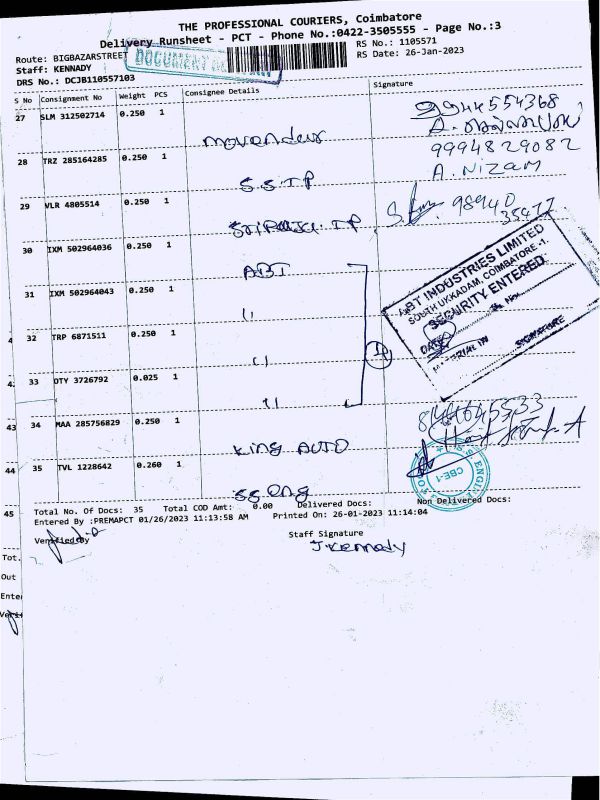 THE PROFESSIONAL COURIERS, Coimbatore
Delivery Runsheet - PCT - Phone No.:0422-3505555 - Page No.:3
Route: BIGBAZARSTREET
RS No.: 1105571
Staff: KENNADY
DOCUMENT
RS Date: 26-Jan-2023
DRS No.: DCJB110557103
S No Consignment No Weight PCS Consignee Details Signature
27 SLM 312502714 0.250 1
9944554368
28 TRZ 285164285 0.250 1 S.S.T.P
9994829082
A. Nizam
29 VLR 4805514 0.250 1
98940
35477
30 IXM 502964036 0.250 1 ABT
31 IXM 502964043 0.250 1 "
32 TRP 6871511 0.250 1 "
33 DTY 3726792 0.025 1 "
ABT INDUSTRIES LIMITED
SOUTH UKKADAM, COIMBATORE -1.
SECURITY ENTERED
No.
DATE
MATERIAL IN
SIGNATURE
43 34 MAA 285756829 0.250 1 King AUTO
44 35 TVL 1228642 0.260 1 SS Eng
CBE-1
45 Total No. Of Docs: 35 Total COD Amt: 0.00 Delivered Docs: Non Delivered Docs:
Entered By :PREMAPCT 01/26/2023 11:13:58 AM Printed On: 26-01-2023 11:14:04
Verified By
Staff Signature
J Kennady
Tot.
Out
Ente